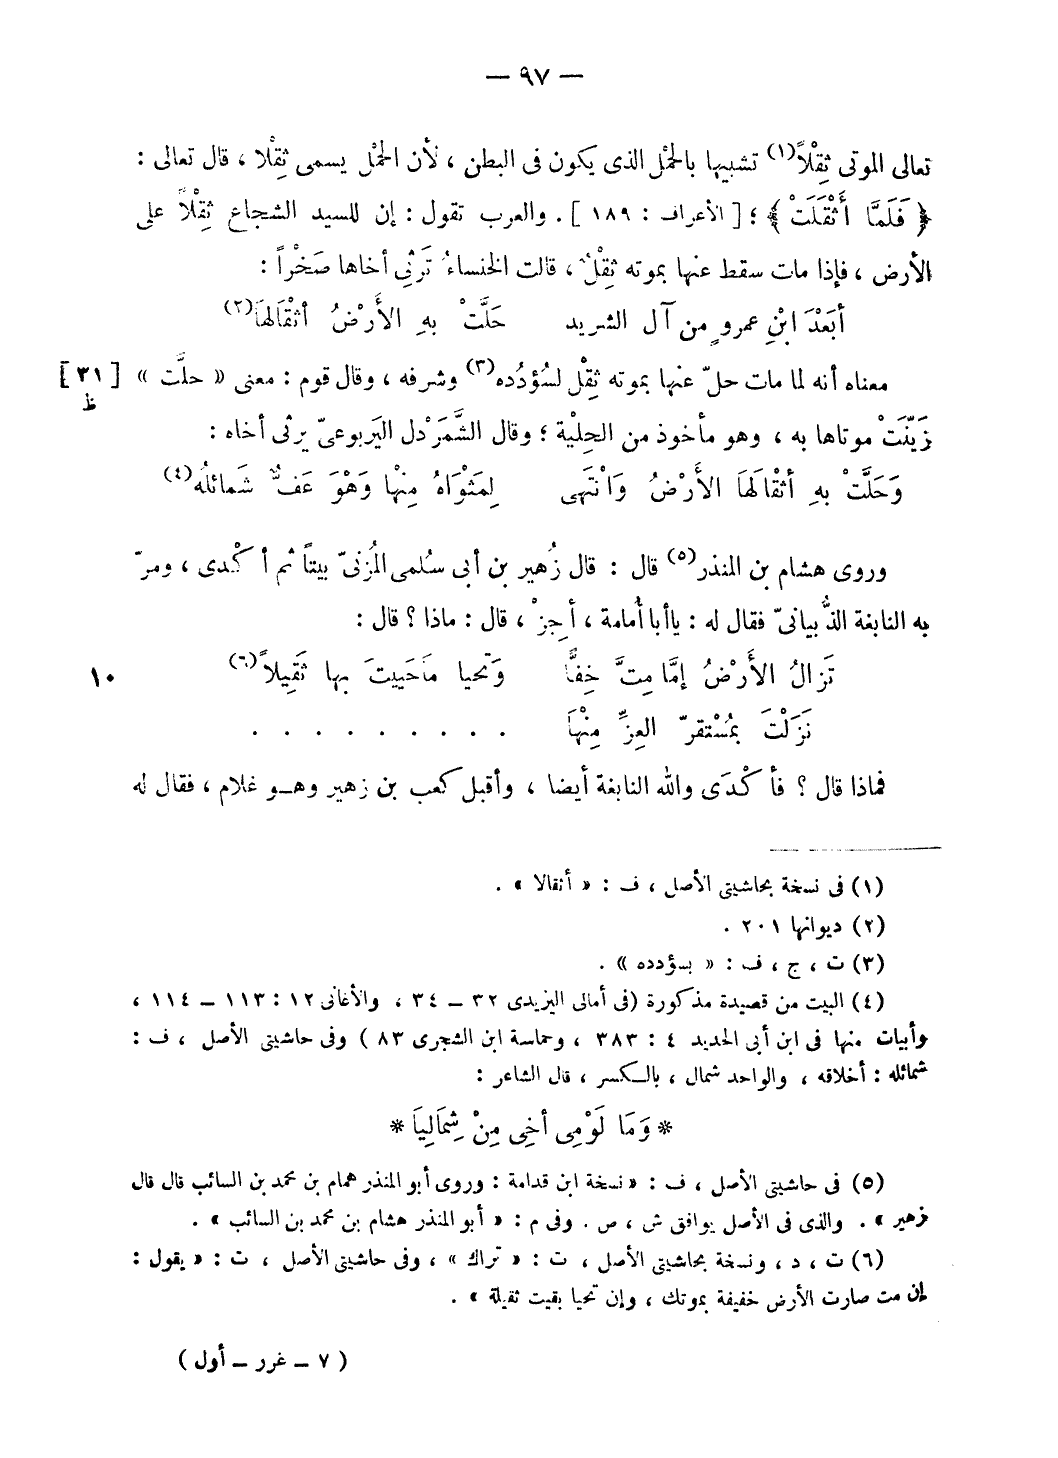 — ٩٧ —
تعالى الموتى ثِقْلاً(١) تشبيها بالحَمْل الذى يكون فى البطن ، لأن الحَمْل يسمى ثِقْلا ، قال تعالى :
﴿ فَلَمَّا أَثْقَلَتْ ﴾ ؛ [ الأعراف : ١٨٩ ] . والعرب تقول : إن للسيد الشجاع ثِقْلاً على
الأرض ، فإذا مات سقط عنها بموته ثِقْلٌ ، قالت الخنساءُ تَرثِى أخاها صَخْراً :
أبَعْدَ ابْنِ عمروٍ من آل الشريد حَلَّتْ بهِ الأَرْضُ أثْقَالهَا(٢)
معناه أنه لما مات حلّ عنها بموته ثِقْل لسُؤدُده(٣) وشرفه ، وقال قوم : معنى « حلَّت » [ ٣١ ]
ظ
زَيّنَتْ موتاها به ، وهو مأخوذ من الحِلْية ؛ وقال الشَّمَرْدل اليَربوعىّ يرثى أخاه :
وَحَلَّتْ بهِ أثقالَهَا الأَرْضُ وَانْتَهى لِمَثْوَاهُ مِنْها وَهْوَ عَفٌّ شَمائلُه(٤)
وروى هشام بن المنذر(٥) قال : قال زُهير بن أبى سُلمى المُزنىّ بيتاً ثم أكْدى ، ومرّ
به النابغة الذُّبيانىّ فقال له : ياأبا أُمامة ، أجِزْ ، قال : ماذا ؟ قال :
تَزالُ الأَرْضُ إمَّا مِتَّ خِفًّا وَتحيا مَاحَييتَ بها ثَقِيلاً(٦) ١٠
نَزَلْتَ بمُسْتقرّ العِزِّ مِنْهَا . . . . . . . . .
فماذا قال ؟ فأكْدَى والله النابغة أيضا ، وأقبل كعب بن زهير وهـو غلام ، فقال له
(١) فى نسخة بحاشيتى الأصل ، ف : « أثقالا » .
(٢) ديوانها ٢٠١ .
(٣) ت ، ج ، ف : « بسؤدده » .
(٤) البيت من قصيدة مذكورة (فى أمالى اليزيدى ٣٢ – ٣٤ ، والأغانى ١٢ : ١١٣ – ١١٤ ،
وأبيات منها فى ابن أبى الحديد ٤ : ٣٨٣ ، وحماسة ابن الشجرى ٨٣ ) وفى حاشيتى الأصل ، ف :
شمائله : أخلاقه ، والواحد شمال ، بالـكسر ، قال الشاعر :
* وَمَا لَوْمِى أخِى مِنْ شِمَالِيَا *
(٥) فى حاشيتى الأصل ، ف : « نسخة ابن قدامة : وروى أبو المنذر همام بن محمد بن السائب قال قال
زهير » . والذى فى الأصل يوافق ش ، ص . وفى م : « أبو المنذر هشام بن محمد بن السائب » .
(٦) ت ، د ، ونسخة بحاشيتى الأصل ، ت : « تراك » ، وفى حاشيتى الأصل ، ت : « يقول :
إن مت صارت الأرض خفيفة بموتك ، وإن تحيا بقيت ثقيلة » .
( ٧ – غرر – أول )